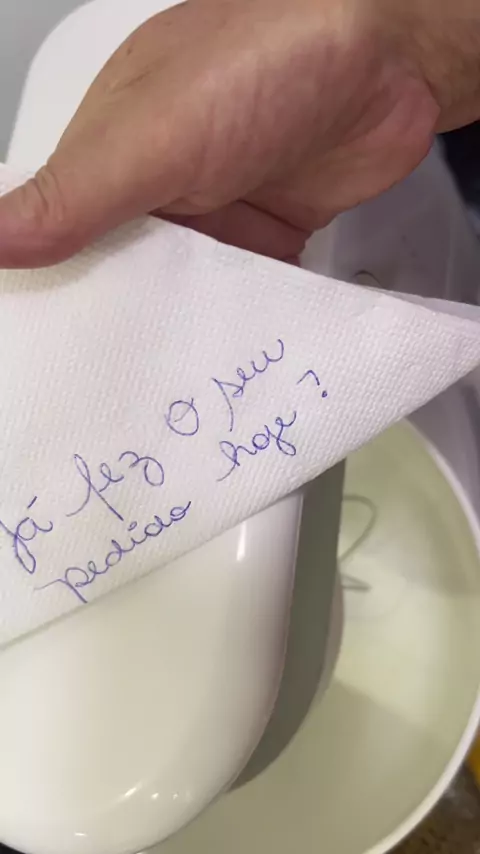 Já fez o seu
pedido hoje?